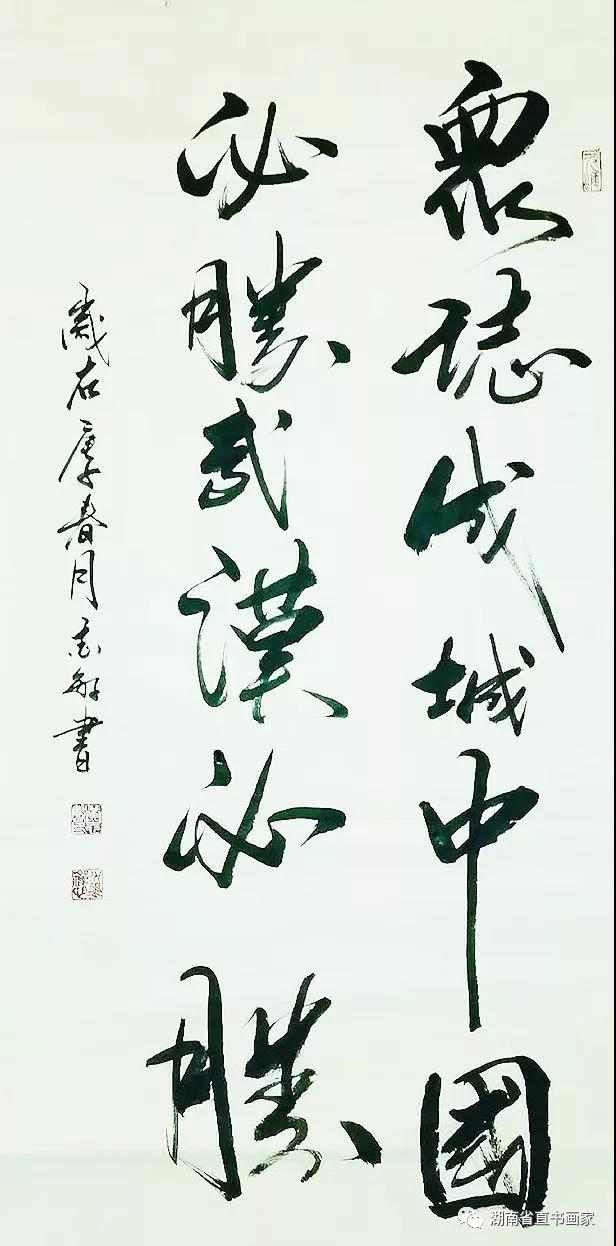 衆誌成城中國
必勝武漢必勝
歲在庚子春月敏書
湖南省直书画家